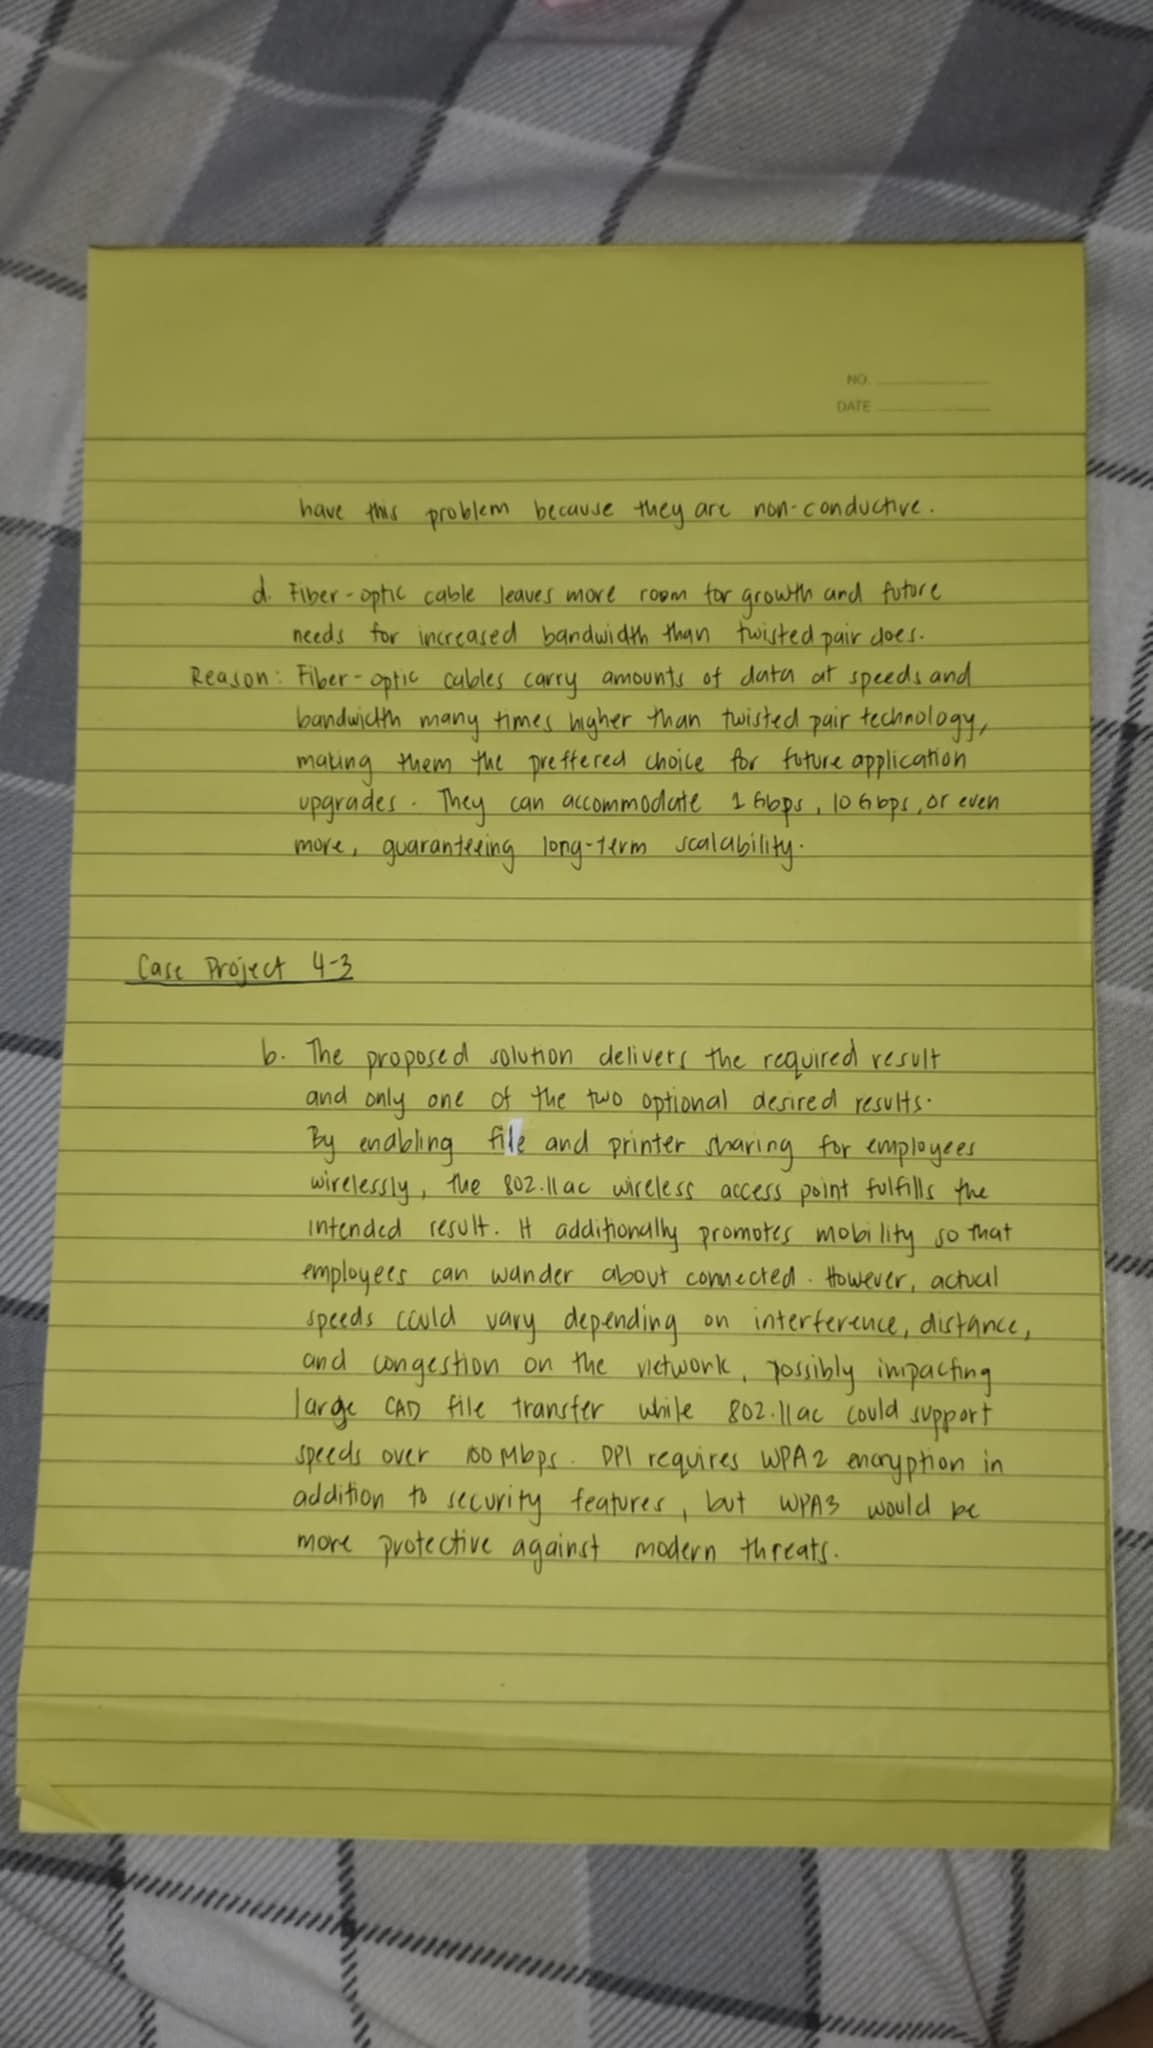 NO.
DATE
have this problem because they are non-conductive.
d. Fiber-optic cable leaves more room for growth and future
needs for increased bandwidth than twisted pair does.
Reason: Fiber-optic cables carry amounts of data at speeds and
bandwidth many times higher than twisted pair technology,
making them the preffered choice for future application
upgrades. They can accommodate 1 Gbps, 10 Gbps, or even
more, guaranteeing long-term scalability.
Case Project 4-3
b. The proposed solution delivers the required result
and only one of the two optional desired results.
By enabling file and printer sharing for employees
wirelessly, the 802.11ac wireless access point fulfills the
intended result. It additionally promotes mobility so that
employees can wander about connected. However, actual
speeds could vary depending on interference, distance,
and congestion on the network, possibly impacting
large CAD file transfer while 802.11ac could support
speeds over 100 Mbps. DPI requires WPA2 encryption in
addition to security features, but WPA3 would be
more protective against modern threats.